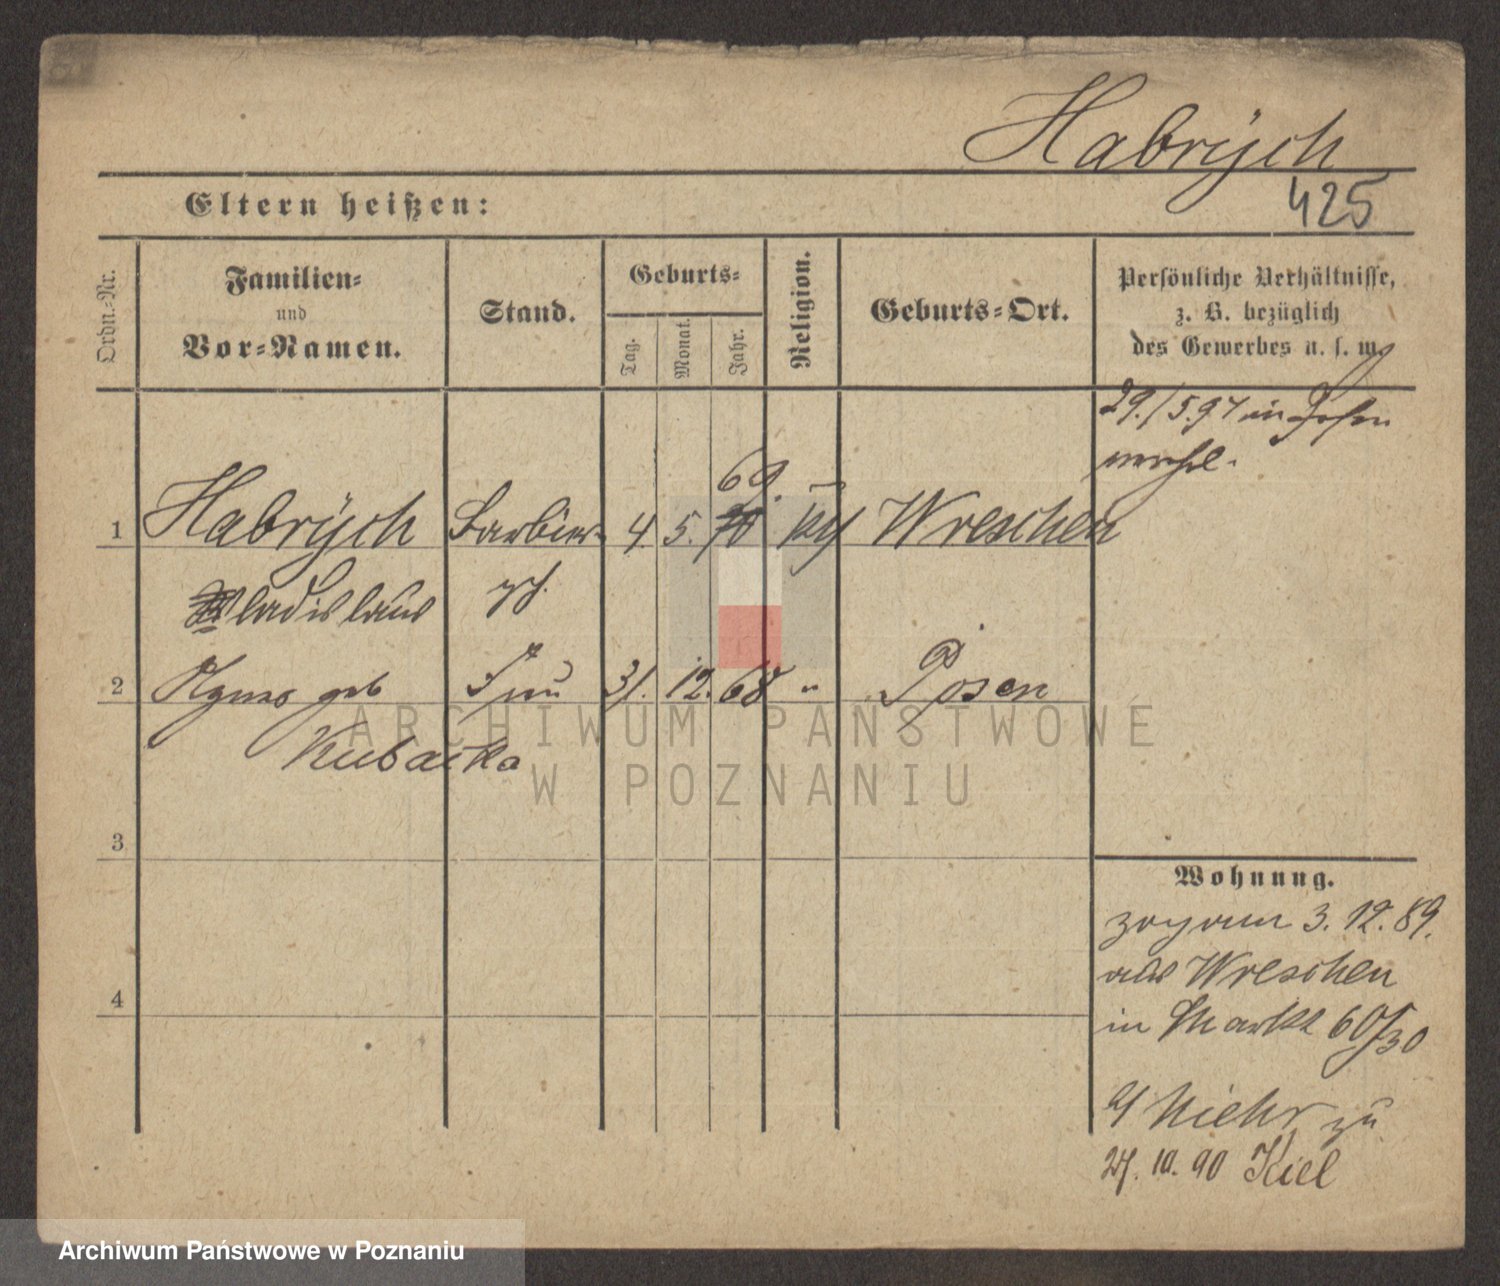 Habrÿch
425
Eltern heißen:
Ordn.-Nr.
Familien-
und
Vor-Namen.
Stand.
Geburts-
Tag.
Monat.
Jahr.
Religion.
Geburts-Ort.
Persönliche Verhältnisse,
z. B. bezüglich
des Gewerbes u. s. w.
29./5.97 in Posen
69.
1 Habrÿch Barbier- 4. 5. 70 Wreschen
Wladislaus
2 Agnes geb Frau 31. 12. 68 " Posen
Kubacka
3
4
Wohnung.
zog am 3. 12. 89.
aus Wreschen
in Markt 60/30
zu
10. 90 Kiel
ARCHIWUM PAŃSTWOWE
W POZNANIU
Archiwum Państwowe w Poznaniu